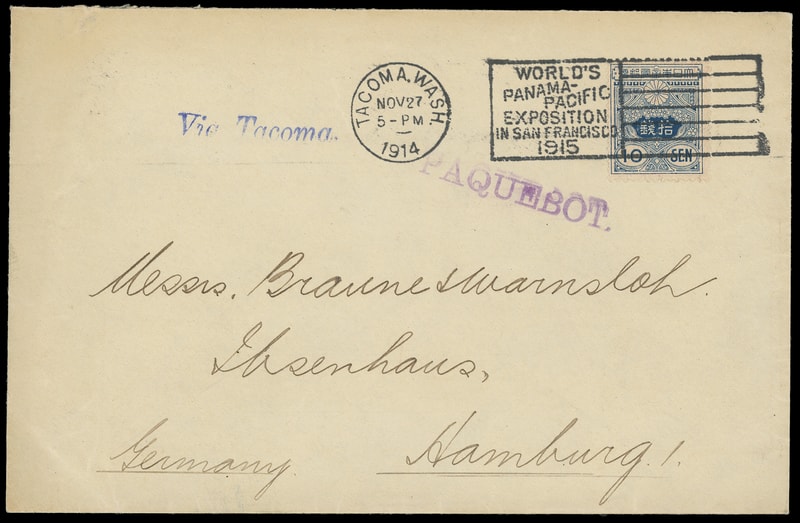 Via Tacoma.
TACOMA, WASH.
NOV 27
5 - PM
1914
WORLD'S
PANAMA-
PACIFIC
EXPOSITION
IN SAN FRANCISCO
1915
拾銭
10 SEN
PAQUEBOT.
Messrs. Braune & Warnsloh.
Ibsenhaus,
Hamburg 1.
Germany.